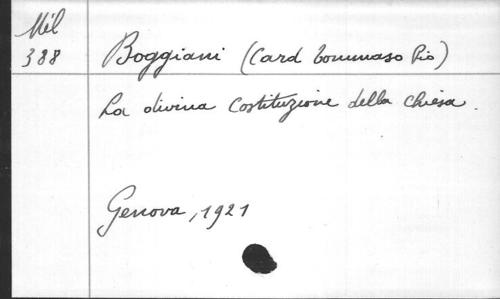 Mil
388
Boggiani (Card Tommaso Pio)
La divina Costituzione della Chiesa.
Genova, 1921